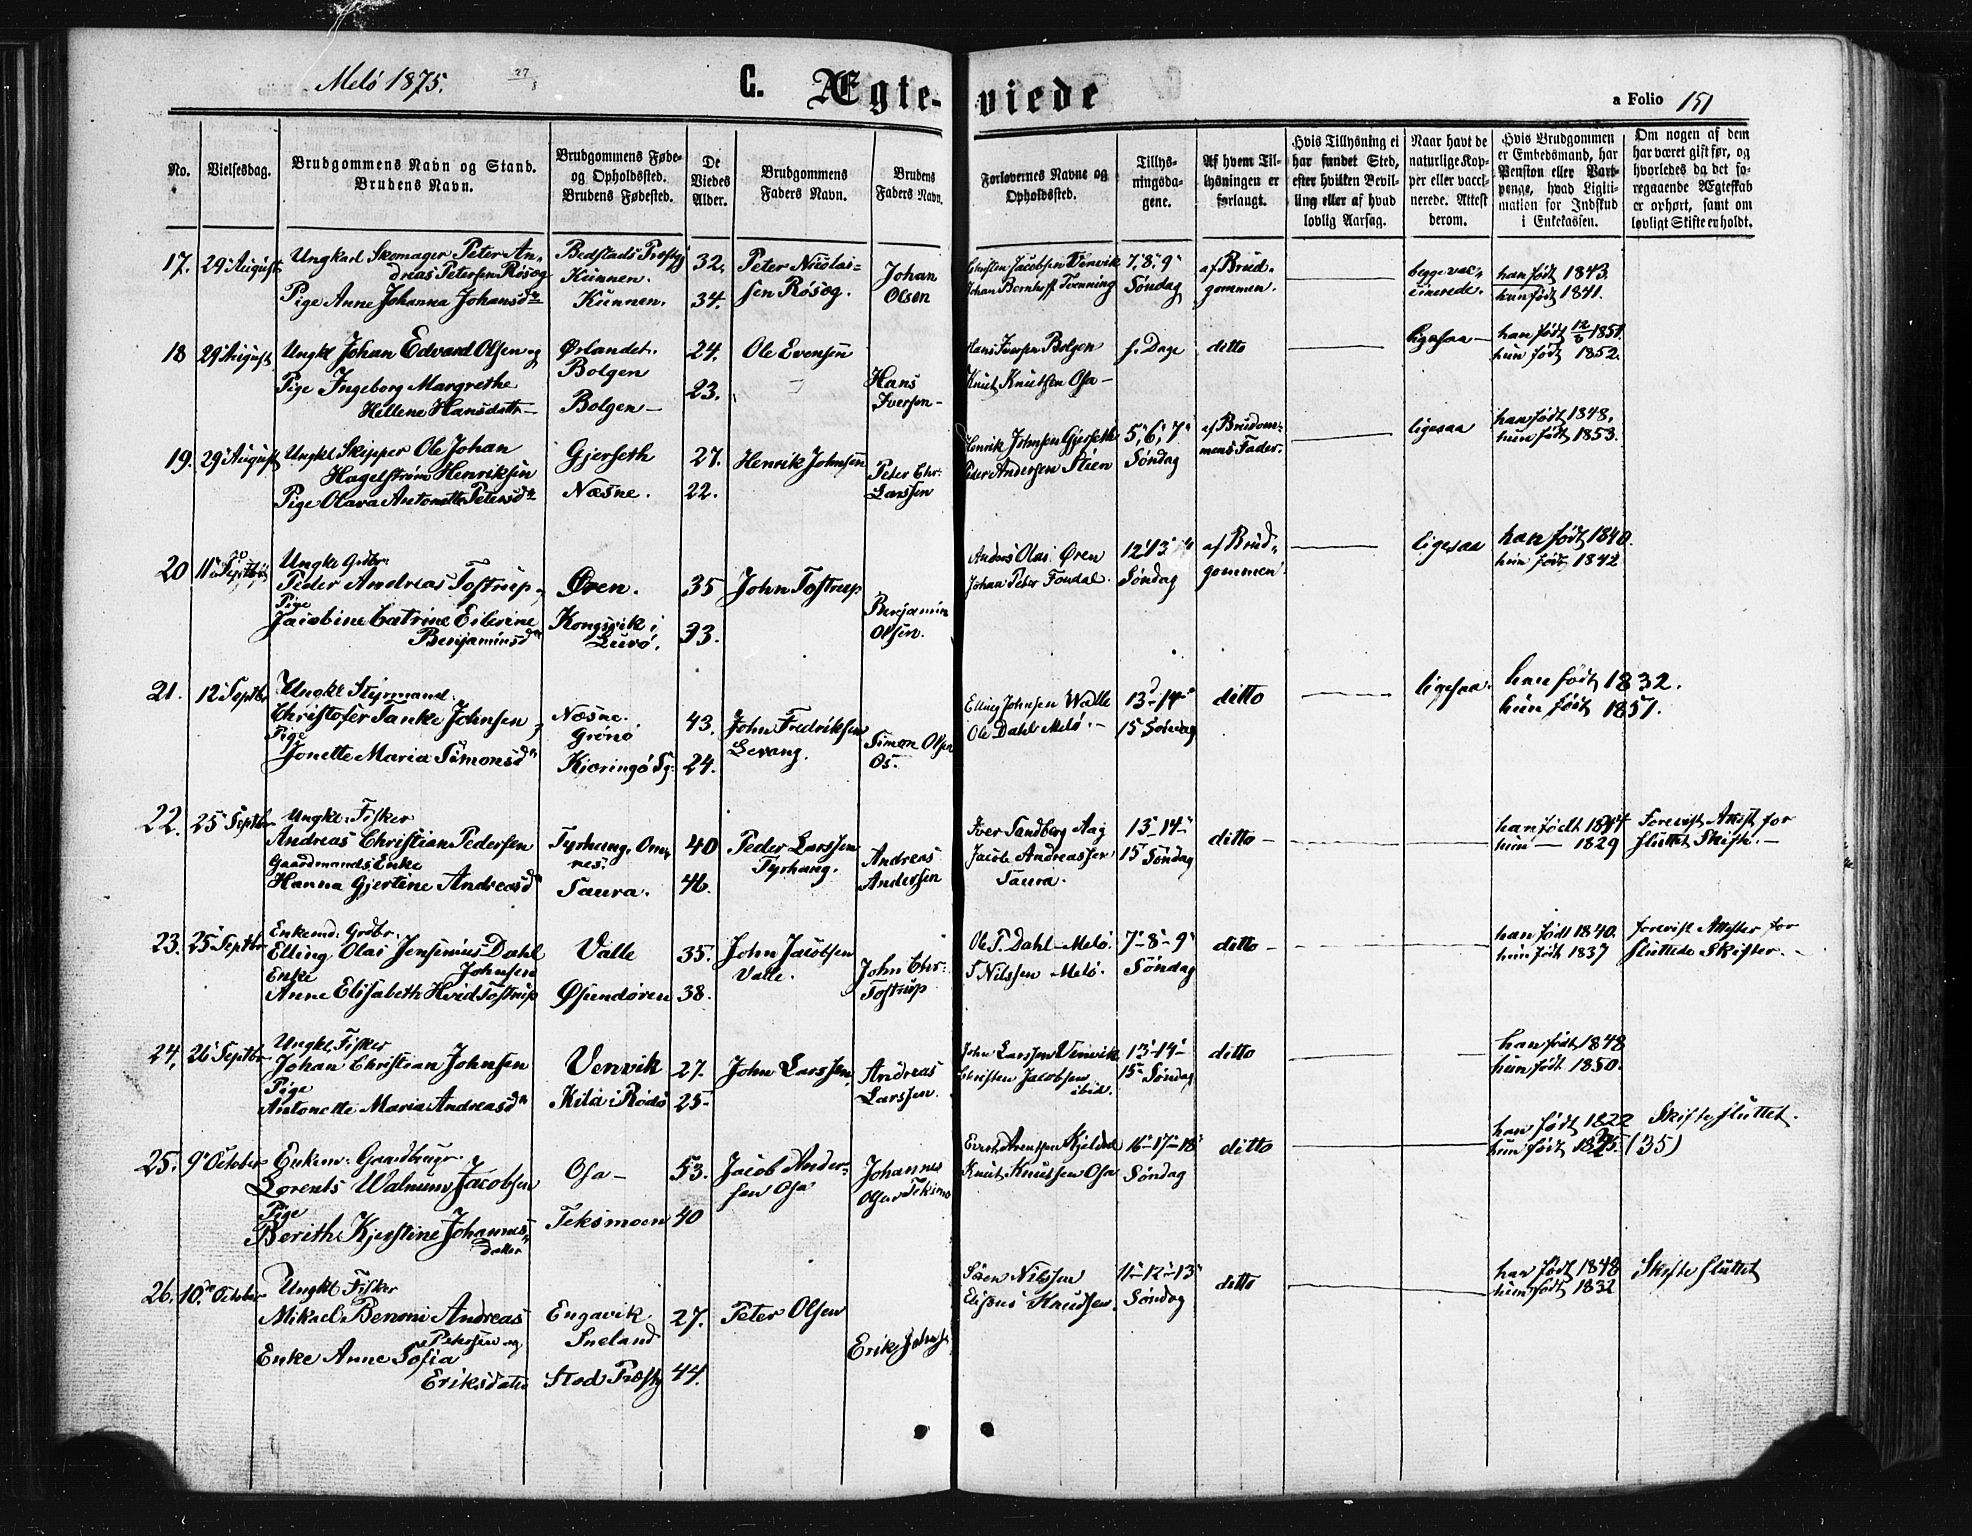 Melö 1875.
C. Ægte-viede
a Folio 151
No.
Vielsesdag.
Brudgommens Navn og Stand.
Brudens Navn.
Brudgommens Føde-
og Opholdssted.
Brudens Fødested.
De
Viedes
Alder.
Brudgommens
Faders Navn.
Brudens
Faders Navn.
Forlovernes Navne og
Opholdssted.
Tillys-
ningsda-
gene.
Af hvem Til-
lysningen er
forlangt.
Hvis Tillysning ei
har fundet Sted,
efter hvilken Bevil-
ling eller af hvad
lovlig Aarsag.
Naar havt de
naturlige Kop-
per eller vacci-
nerede. Attest
derom.
Hvis Brudgommen
er Embedsmand, har
Pension eller Vart-
penge, hvad Ligiti-
mation for Indskud
i Enkekassen.
Om nogen af dem
har været gift før, og
hvorledes da det fo-
regaaende Ægteskab
er ophørt, samt om
lovligt Skifte er holdt.
17. 29 August
Ungkarl Skomager Peter An-
dreas Petersen Røsøg
Pige Anne Johanna Johansdr
Bedstads Præstgj
Kunnen.
Kunnen.
32.
34.
Peter Nicolai-
sen Røsøg.
Johan
Olsen
Christen Jacobsen Venvik
Johan Bernhoff Tvenning
7, 8, 9
Søndag
af Brud-
gommen.
begge vac-
cinerede.
han født 1843.
hun født 1841.
18 29 August
Ungkl Johan Edvard Olsen og
Pige Ingeborg Margrethe
Hellene Hansdattr
Ørlandet.
Bolgen
Bolgen
24.
23.
Ole Evensen
Hans
Iversen
Hans Iversen Bolgen
Knut Knutsen Osa
s. Dage
ditto
ligesaa
han født 12/6 1851.
hun født 1852.
19. 29 August
Ungkl Skipper Ole Johan
Hagelstrøm Henriksen
Pige Olava Antonette Petersdr
Gjerseth
Næsne.
27.
22.
Henrik Johnsen
Peter Chr:
Larssen
Henrik Johnsen Gjerseth
Peder Andersen Stien
5, 6, 7
Søndag
af Brudom-
mens Fader.
ligesaa
han født 1848.
hun født 1853.
20 11 Septbr
Ungkl Grdbr.
Peder Andreas Tostrup
Pige
Jacobine Catrine Eilevine
Benjaminsdr
Øren.
Kongsvik i
Lurø.
35
33.
John Tostrup
Benjamin
Olsen.
Anders Olai Øren
Johan Peter Fondal.
12 13 14
Søndag
af Brud-
gommen
ligesaa
han født 1840.
hun født 1842
21. 12 Septbr
Ungkl Styrmand
Christofer Tanke Johnsen
Pige
Jonette Maria Simonsdr
Næsne.
Grønø
Kjæringø Sg:
43.
24.
John Fredriksen
Levang.
Simon Olsen
Os.
Elling Johnsen Walle
Ole Dahl Melö.
13-14
15 Søndag
ditto
ligesaa.
han født 1832.
hun født 1851.
22. 25 Septbr
Ungkl: Fisker
Andreas Christian Pedersen
Gaardmands Enke
Hanna Gjertine Andreasdr
Tyrhaug. Om-
nes.
Saura.
40
46.
Peder Larssen
Tyrhaug.
Andreas
Andersen
Iver Sandberg Aag
Jacob Andreassen
Saura.
13-14
15 Søndag
ditto
han født 1844
hun — 1829
Forevist Attest for
sluttet Skifte.
23. 25 Septbr
Enkemd: Grdbr.
Elling Olai Jensenius Dahl
Johnsen
Enke
Anne Elisabeth Hvid Tostrup
Valle
Øsundøren
35.
38.
John Jacobsen
Valle.
John Chr:
Tostrup
Ole T. Dahl Melö.
T Nilssen Melö.
7-8-9
Søndag
ditto
han født 1840.
hun født 1837
forevist Attester for
sluttede Skifter.
24. 26 Septbr
Ungkl Fisker
Johan Christian Johnsen
Pige
Antonette Maria Andreasdr
Venvik
Kila i Rødø
27.
25
John Larssen
Andreas
Larssen.
John Larssen Venvik
Christen Jacobsen
ibid.
13-14
15 Søndag
ditto
han født 1848
hun født 1850.
25. 9 October
Enkem: Gaardbrugr
Lorents Walnum Jacobsen
Pige
Berith Kjerstine Johannes-
datter
Osa
Teksmoen
53.
40
Jacob Ander-
sen Osa
Johannes
Olsen Teksmo
Evert Arentsen Kjeldal
Knut Knutsen Osa
16-17-18
Søndag
ditto
han født 1822
hun født 1835. (35)
Skifte sluttet.
26. 10 October
Ungkl Fisker
Mikael Benoni Andreas
Petersen og
Enke Anne Sofia
Eriksdatter
Engavik
Sneland
Stod Præstg
27.
44.
Peter Olsen
Erik Johns
Søren Nilssen
Elisæus Knudsen.
11-12-13
Søndag
ditto
han født 1848
hun født 1832
Skifte sluttet